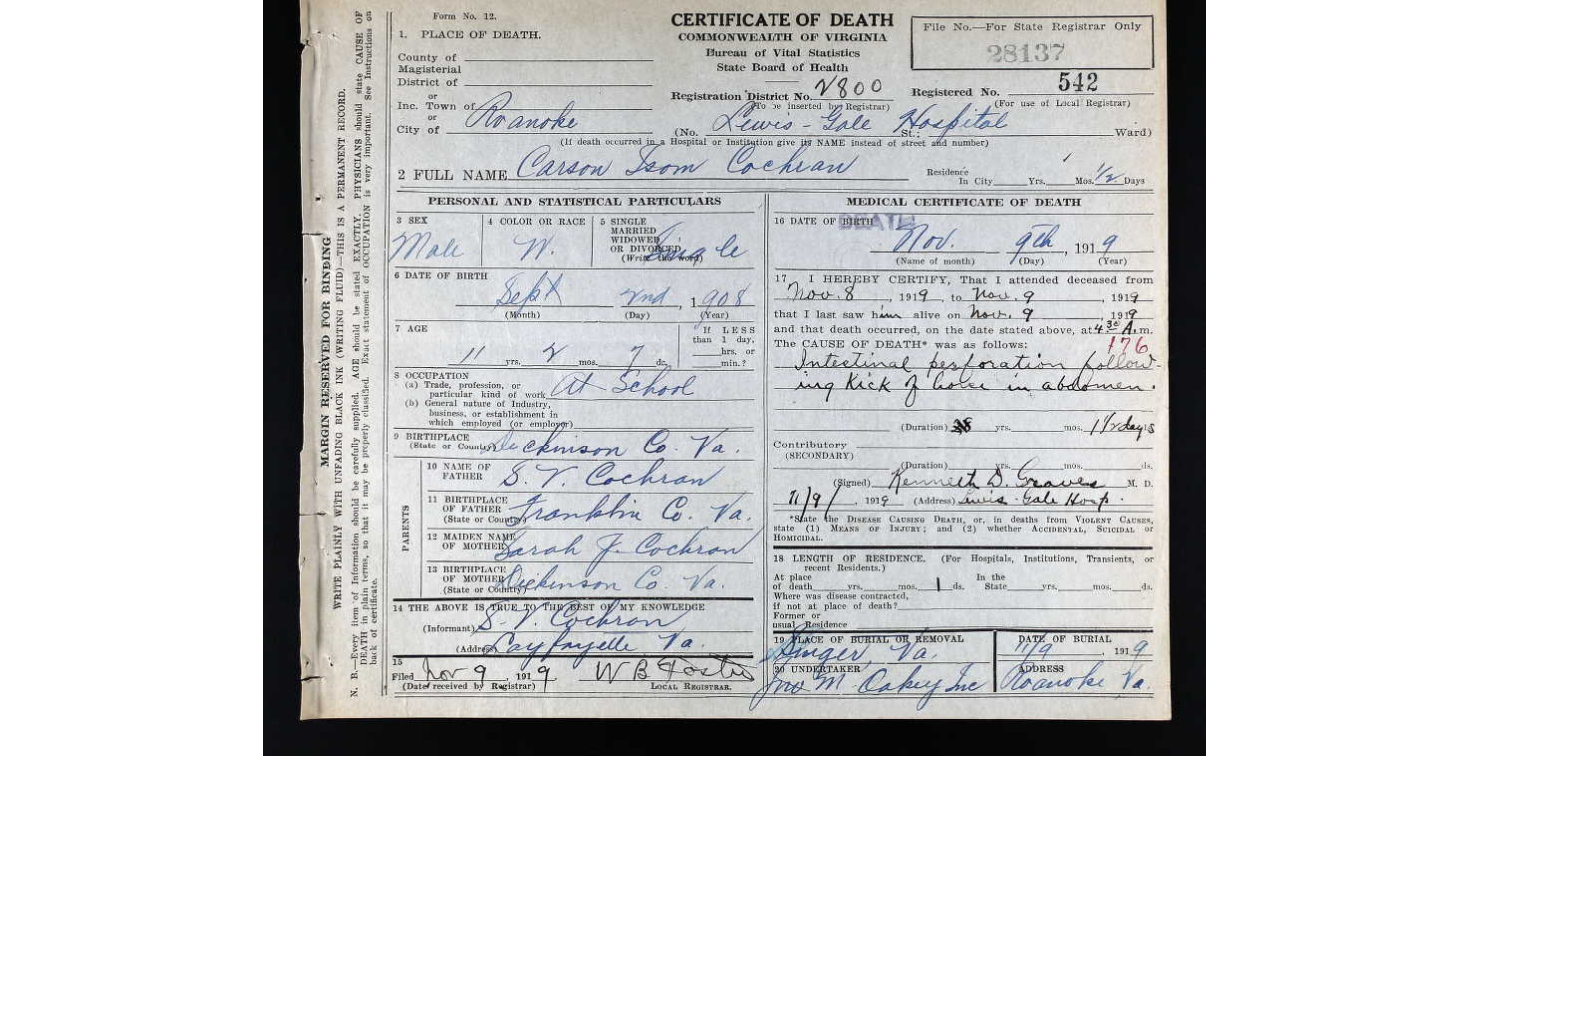 MARGIN RESERVED FOR BINDING
WRITE PLAINLY WITH UNFADING BLACK INK (WRITING FLUID)—THIS IS A PERMANENT RECORD.
N. B.—Every item of Information should be carefully supplied. AGE should be stated EXACTLY. PHYSICIANS should state CAUSE OF
DEATH in plain terms, so that it may be properly classified. Exact statement of OCCUPATION is very important. See Instructions on
back of certificate.
Form No. 12.
CERTIFICATE OF DEATH
COMMONWEALTH OF VIRGINIA
Bureau of Vital Statistics
State Board of Health
File No.—For State Registrar Only
28137
1. PLACE OF DEATH.
County of
Magisterial
District of
or
Inc. Town of
or
City of Roanoke
Registration District No. 2800
(To be inserted by Registrar)
Registered No. 542
(For use of Local Registrar)
(No. Lewis-Gale Hospital St.; Ward)
(If death occurred in a Hospital or Institution give its NAME instead of street and number)
2 FULL NAME Carson Isom Cochran
Residence
In City Yrs. Mos. 1/2 Days
PERSONAL AND STATISTICAL PARTICULARS
3 SEX
Male
4 COLOR OR RACE
W.
5 SINGLE
MARRIED
WIDOWED
OR DIVORCED
(Write the word)
Single
6 DATE OF BIRTH
Sept 2nd, 1908
(Month) (Day) (Year)
7 AGE
11 yrs. 2 mos. 7 ds.
If LESS
than 1 day,
hrs. or
min.?
8 OCCUPATION
(a) Trade, profession, or
particular kind of work At School
(b) General nature of Industry,
business, or establishment in
which employed (or employer)
9 BIRTHPLACE
(State or County) Dickinson Co. Va.
PARENTS
10 NAME OF
FATHER S. V. Cochran
11 BIRTHPLACE
OF FATHER
(State or County) Franklin Co. Va.
12 MAIDEN NAME
OF MOTHER Sarah J. Cochran
13 BIRTHPLACE
OF MOTHER
(State or Country) Dickinson Co. Va.
14 THE ABOVE IS TRUE TO THE BEST OF MY KNOWLEDGE
(Informant) S. V. Cochran
(Address) Va.
15
Filed Nov 9, 1919 W B Foster
(Date received by Registrar) LOCAL REGISTRAR.
MEDICAL CERTIFICATE OF DEATH
16 DATE OF BIRTH
DEATH
Nov. 9th, 1919
(Name of month) (Day) (Year)
17 I HEREBY CERTIFY, That I attended deceased from
Nov. 8, 1919, to Nov. 9, 1919
that I last saw him alive on Nov. 9, 1919
and that death occurred, on the date stated above, at 4 30 A.m.
The CAUSE OF DEATH* was as follows: 176
Intestinal perforation follow-
ing Kick of horse in abdomen.
(Duration) yrs. mos. 1 1/2 days
Contributory
(SECONDARY)
(Duration) yrs. mos. ds.
(Signed) Kenneth D. Graves M. D.
11/9/, 1919 (Address) Lewis-Gale Hosp.
*State the DISEASE CAUSING DEATH, or, in deaths from VIOLENT CAUSES,
state (1) MEANS OF INJURY; and (2) whether ACCIDENTAL, SUICIDAL or
HOMICIDAL.
18 LENGTH OF RESIDENCE. (For Hospitals, Institutions, Transients, or
recent Residents.)
At place
of death yrs. mos. 1 ds.
In the
State yrs. mos. ds.
Where was disease contracted,
if not at place of death?
Former or
usual Residence
19 PLACE OF BURIAL OR REMOVAL
Singer, Va.
DATE OF BURIAL
11/9, 1919
20 UNDERTAKER
Jno M. Oakey Inc
ADDRESS
Roanoke Va.